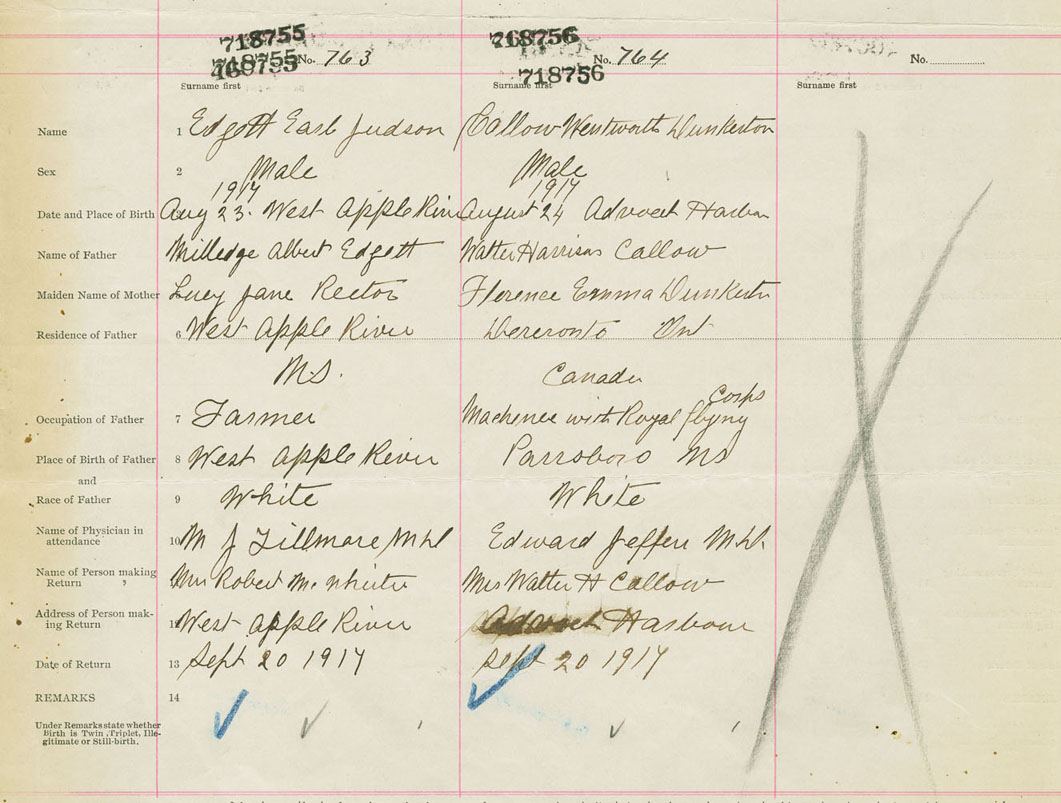 718755 718756
718755 No. 763 No. 764 No.
469755 718756
Surname first Surname first Surname first
Name 1 Edgett Earl Judson Callow Wentworth Dunkerton
Sex 2 Male Male
1917 1917
Date and Place of Birth Aug 23. West Apple River August 24 Advocet Harbor
Name of Father Milledge Albert Edgett Walter Harrison Callow
Maiden Name of Mother Lucy Jane Rector Florence Emma Dunkerton
Residence of Father 6 West Apple River Dereronto Ont
N.S. Canada
Corps
Occupation of Father 7 Farmer Machenec with Royal flying
Place of Birth of Father 8 West Apple River Parrsboro NS
and
Race of Father 9 White White
Name of Physician in
attendance 10 M J Fillmore M.D. Edward Jeffers M.D.
Name of Person making
Return Mrs Robert Mc Whirter Mrs Walter H Callow
Address of Person mak-
ing Return West Apple River Advocet Harbour
Date of Return 13 Sept 20 1917 Sept 20 1917
REMARKS 14
Under Remarks state whether
Birth is Twin, Triplet, Ille-
gitimate or Still-birth.